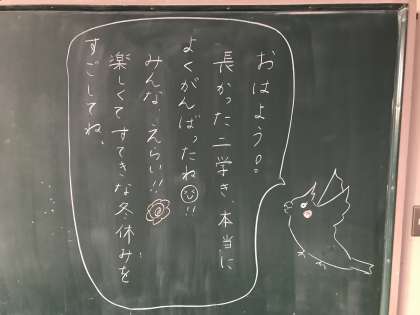 おはよう。
長かった二学き、本当に
よくがんばったね!!
みんな、えらい!!
楽しくてすてきな冬休みを
すごしてね、